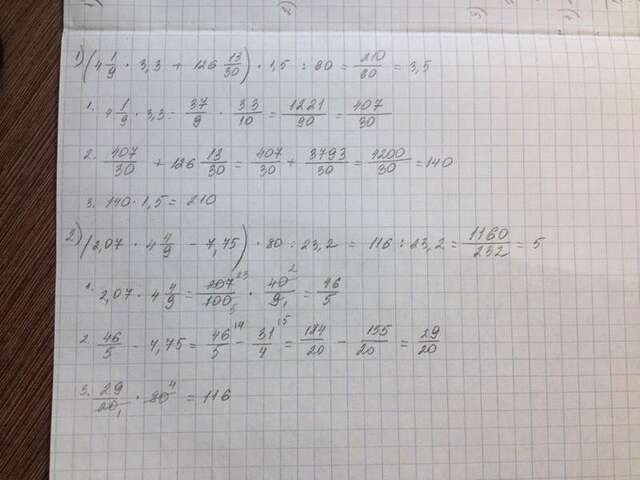 1) (4 1/9 · 3,3 + 126 13/30) · 1,5 : 60 = 210/60 = 3,5
1. 4 1/9 · 3,3 = 37/9 · 33/10 = 1221/90 = 407/30
2. 407/30 + 126 13/30 = 407/30 + 3793/30 = 4200/30 = 140
3. 140 · 1,5 = 210
2) (2,07 · 4 4/9 - 7,75) · 80 : 23,2 = 116 : 23,2 = 1160/232 = 5
1. 2,07 · 4 4/9 = 207 23/100 5 · 40 2/9 1 = 46/5
2. 46/5 - 7,75 = 46/5 - 31/4 = 184/20 - 155/20 = 29/20
3. 29/20 1 · 80 4 = 116